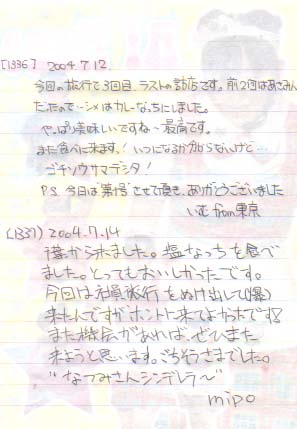 [1336] 2004.7.12
今回の旅行で3回目、ラストの訪店です。前2回はあさみん
だったので…シメはカレーなっちにしました。
やっぱ美味しいですね〜最高です。
また食べに来ます! いつになるか分からないけど…
ゴチソウサマデシタ!
P.S. 今日は"第1号"させて頂き、ありがとうございました
いむ from東京
(1337) 2004.7.14
から来ました。塩なっちを食べ
ました。とってもおいしかったです。
今回は社員旅行をぬけ出して(爆)
来たんですがホントに来てよかったです!
また機会があれば、ぜひまた
来ようと思います。ごち行さまでした。
"なつみさんシンデレラ〜"
mipo